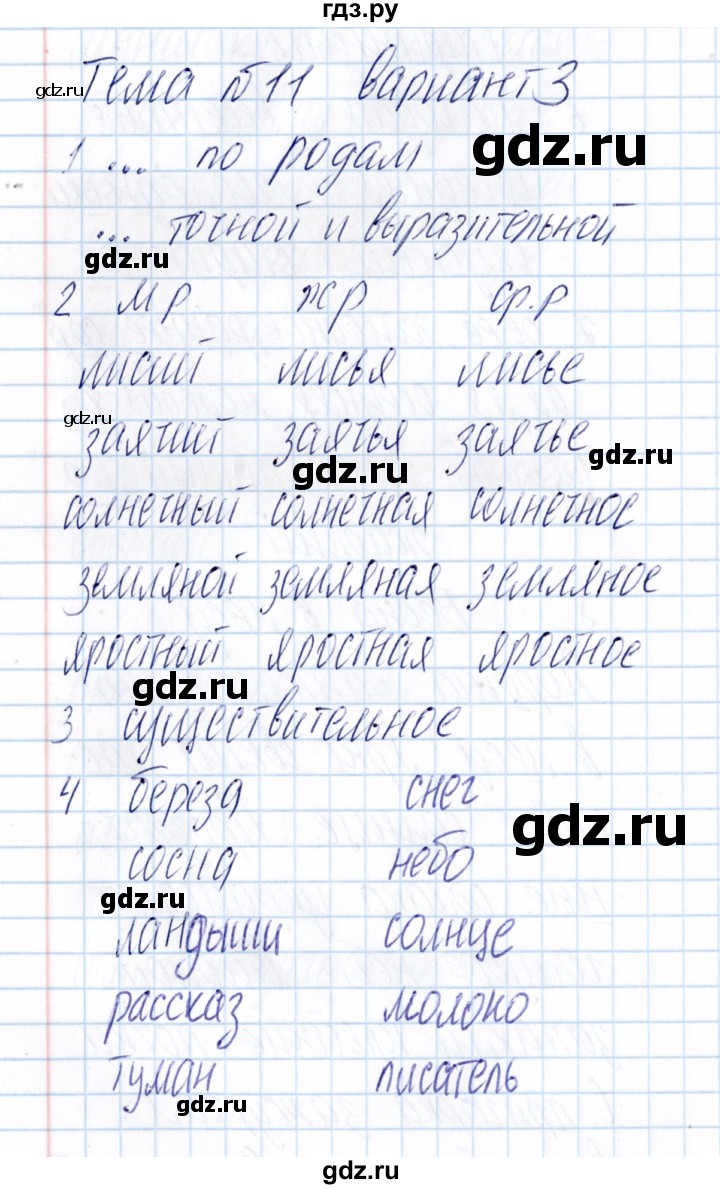 гдз.ру
gdz.ru
Тема №11 вариант 3
1 ... по родам
gdz.ru
... точной и выразительной
gdz.ru
2 м р ж р ср.р
лисий лисья лисье
gdz.ru
заячий заячья заячье
gdz.ru
gdz.ru
солнечный солнечная солнечное
земляной земляная земляное
яростный яростная яростное
gdz.ru
3 существительное
4 береза снег
gdz.ru
сосна небо
gdz.ru
ландыши солнце
рассказ молоко
туман писатель
gdz.ru
gdz.ru